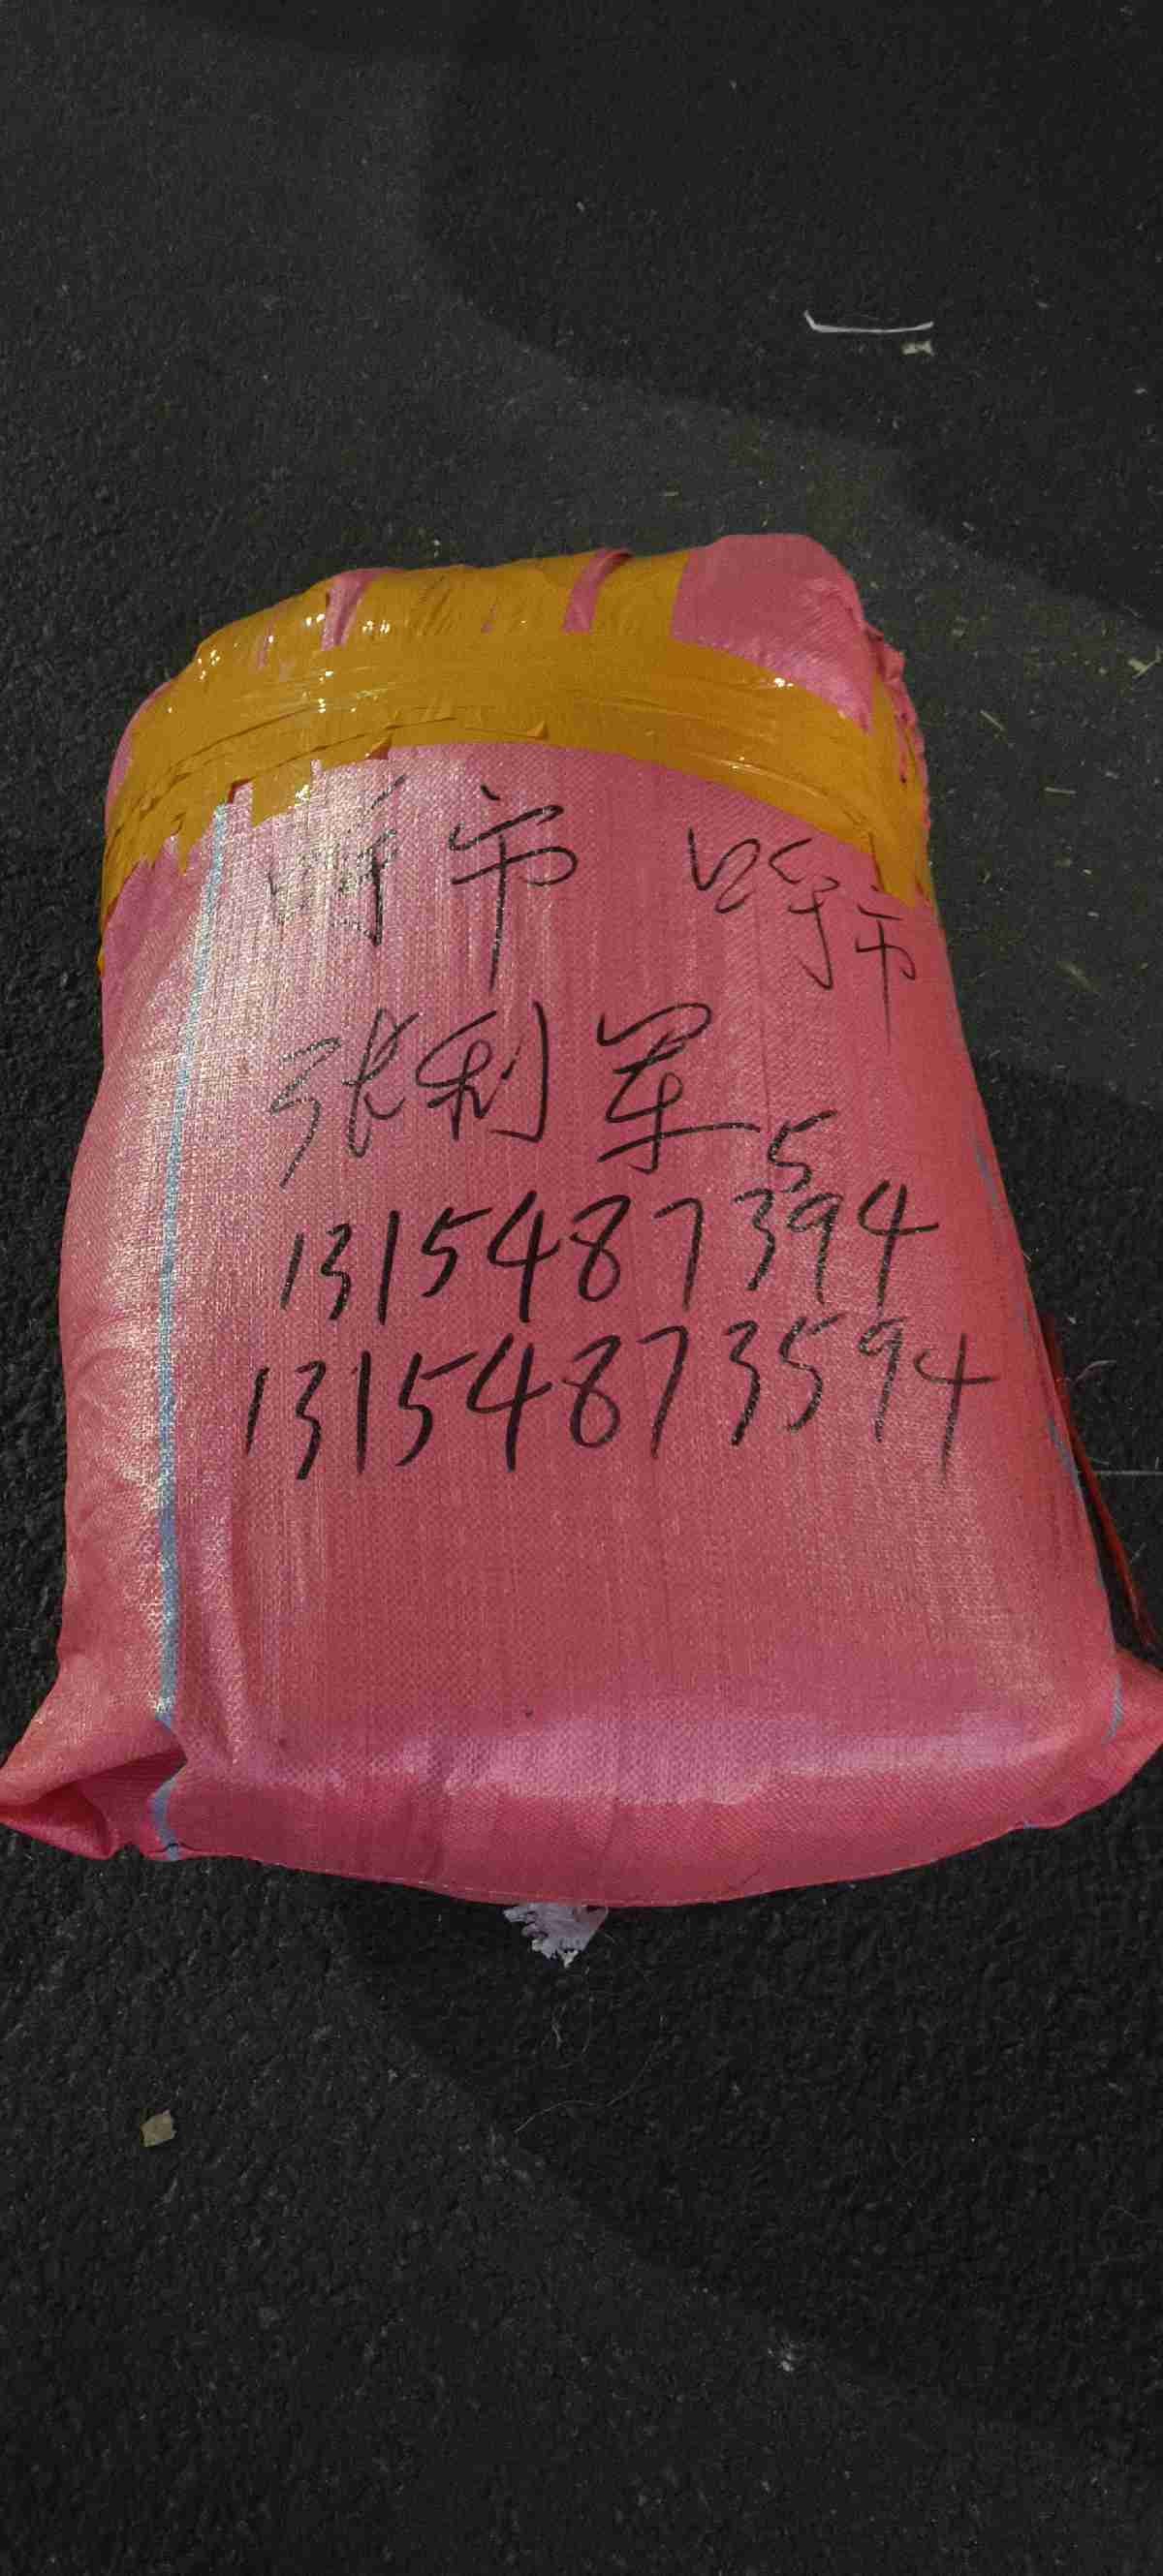 呼市 呼市
张利军
13154873594
13154873594